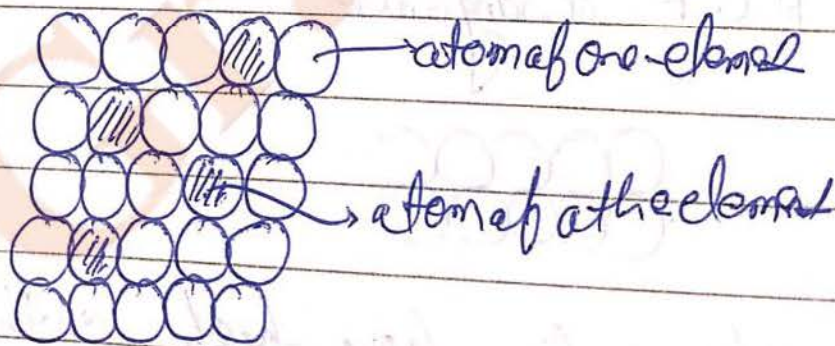 atom of one element
atom of other element